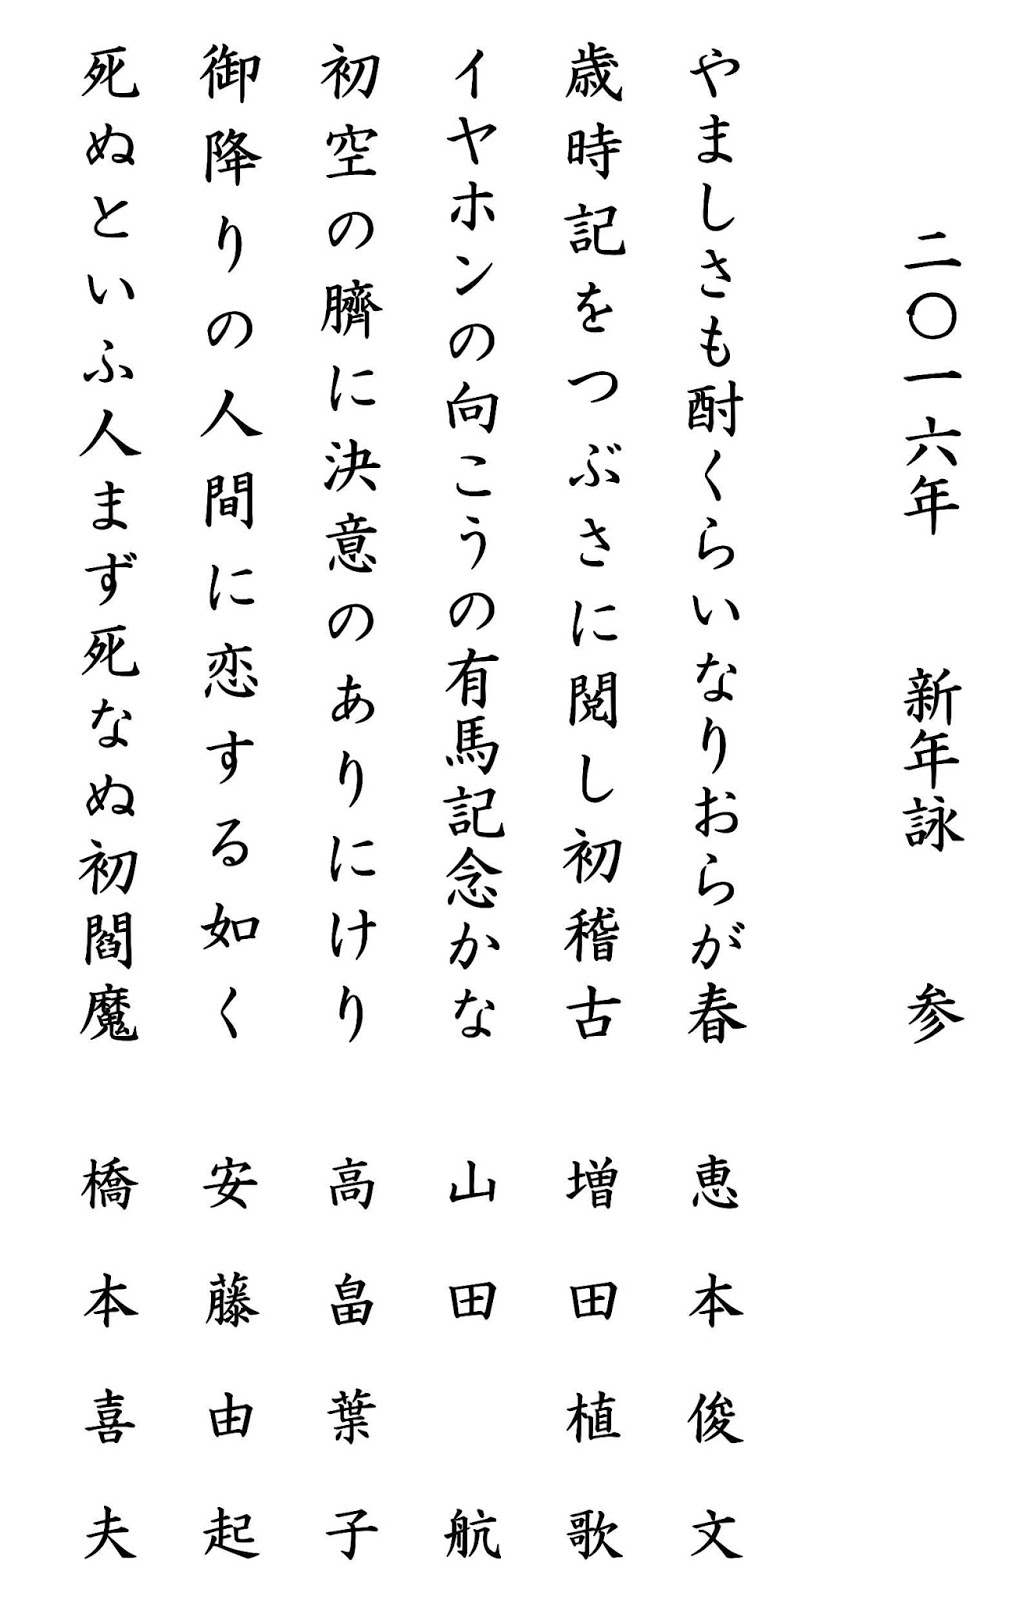 二〇一六年　新年詠　参
やましさも酎くらいなりおらが春　恵本俊文
歳時記をつぶさに閲し初稽古　増田植歌
イヤホンの向こうの有馬記念かな　山田航
初空の臍に決意のありにけり　高畠葉子
御降りの人間に恋する如く　安藤由起
死ぬといふ人まず死なぬ初閻魔　橋本喜夫